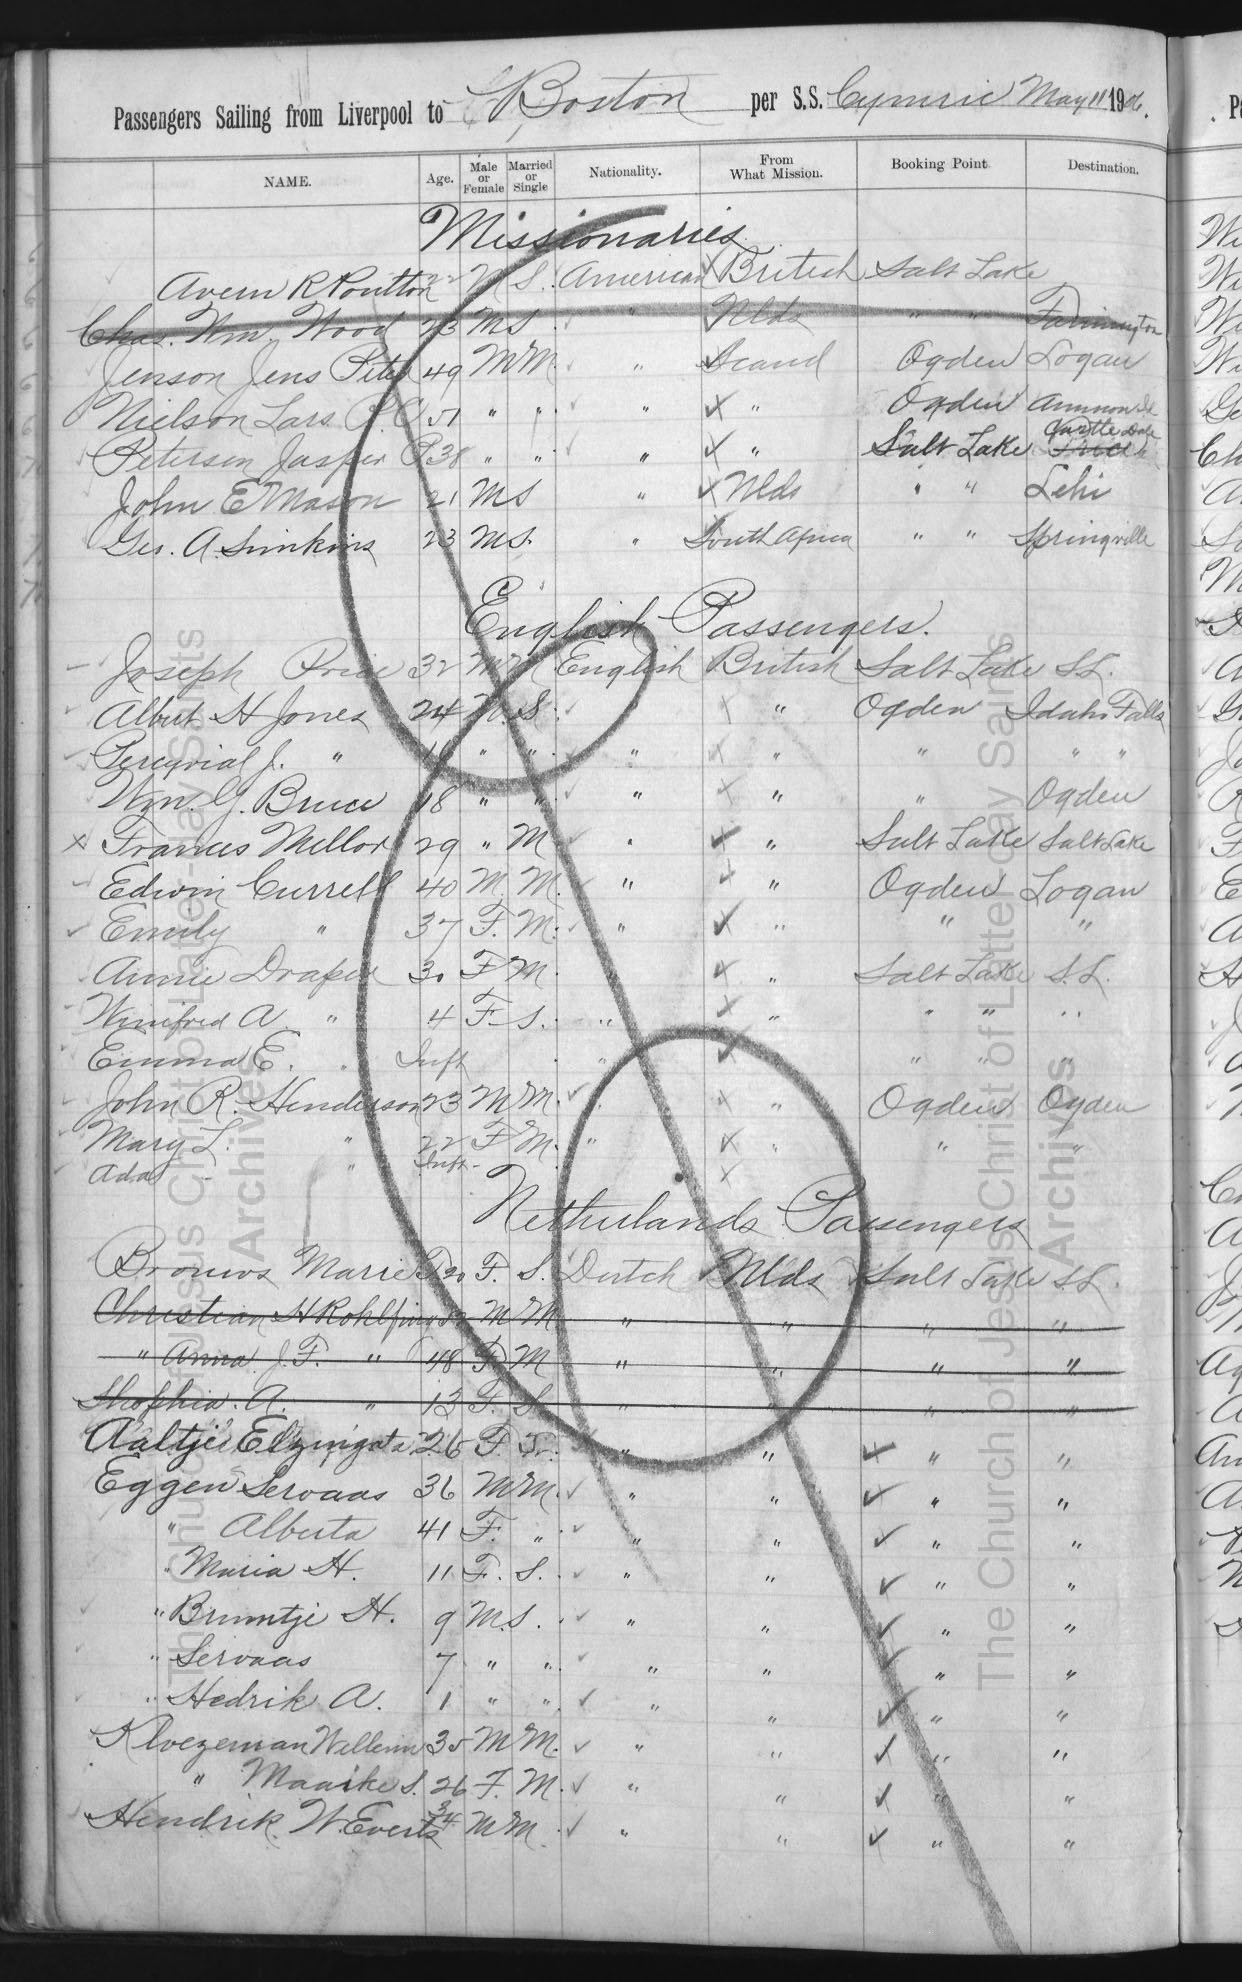 Passengers Sailing from Liverpool to Boston per S.S. Cymric May 11 1906.
NAME. Age. Male or Female Married or Single Nationality. From What Mission. Booking Point. Destination.
Missionaries
Avern R Poulton 22 M S. American British Salt Lake
Chas. Wm. Wood 23 M S " Nlds " " Farmington
Jenson Jens Peter 49 M M " Scand Ogden Logan
Nielson Lars P. 51 " " " " Ogden Ammon Id
Peterson Jasper P 38 " " " " Salt Lake Castle Dale
John E Mason 21 M S " Nlds " " Lehi
Geo. A. Simkins 23 M S. " South Africa " " Springville
English Passengers.
Joseph Price 32 M M English British Salt Lake S.L.
Albert H Jones 24 M S " Ogden Idaho Falls
Percyvial J. " 18 " " " " " " "
Wm. G. Bruce 18 " " " " " Ogden
x Frances Mellor 29 " M " " Salt Lake Salt Lake
Edwin Currell 40 M. M. " " Ogden Logan
Emily " 37 F. M. " " " "
Annie Draper 30 F M " " Salt Lake S.L.
Winifred A " 4 F S. " " " " "
Emma E. " Inft " " " " "
John R. Henderson 23 M M. " " Ogden Ogden
Mary L. " 22 F M. " " " "
Ada " Inft.
Netherlands Passengers
Brouws Marie P. 20 F. S. Dutch Nlds Salt Lake S.L.
Christian H Rohlfing 52 M M " " " "
" Anna J. F. " 48 F M " " " "
Shophia. A. " 13 F. S. " " " "
Aaltjes Elzinga 26 F. " " " "
Eggen Servaas 36 M M. " " " "
" Alberta 41 F. " " " " "
" Maria H. 11 F. S. " " " "
" Bruntje H. 9 M. S. " " " "
" Servaas 7 " " " " " "
" Hedrik A. 1 " " " " " "
Kloezeman Willem 35 M M. " " " "
" Maaike S. 26 F. M. " " " "
Hendrik. W. Everts 34 M M. " " " "
The Church of Jesus Christ of Latter-day Saints
Archives
The Church of Jesus Christ of Latter-day Saints
Archives